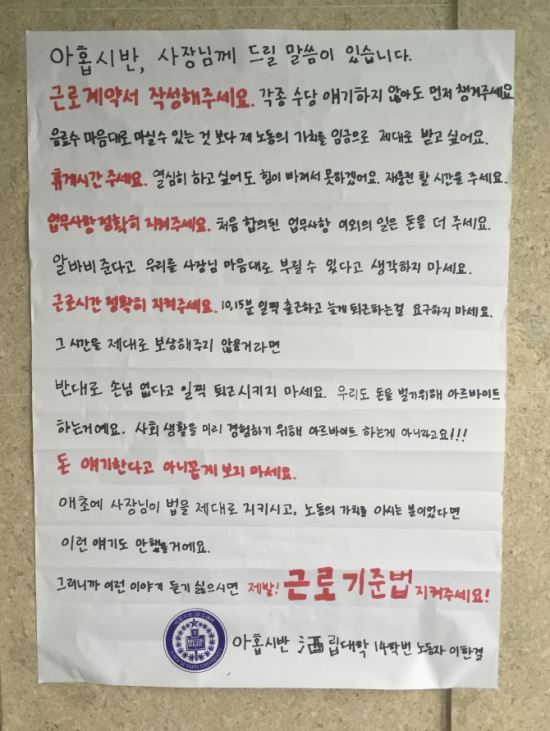 아홉시반, 사장님께 드릴 말씀이 있습니다.
근로계약서 작성해주세요. 각종 수당 얘기하지 않아도 먼저 챙겨주세요
음료수 마음대로 마실수 있는 것 보다 제 노동의 가치를 임금으로 제대로 받고 싶어요.
휴게시간 주세요. 열심히 하고 싶어도 힘이 빠져서 못하겠어요. 재충전 할 시간을 주세요.
업무사항 정확히 지켜주세요. 처음 합의된 업무사항 이외의 일은 돈을 더 주세요.
알바비 준다고 우리를 사장님 마음대로 부릴수 있다고 생각하지 마세요.
근로시간 정확히 지켜주세요. 10, 15분 일찍 출근하고 늦게 퇴근하는걸 요구하지 마세요.
그 시간을 제대로 보상해주지 않을거라면
반대로 손님 없다고 일찍 퇴근시키지 마세요. 우리도 돈을 벌기위해 아르바이트
하는거예요. 사회 생활을 미리 경험하기 위해 아르바이트 하는게 아니라고요!!!
돈 얘기한다고 아니꼽게 보지 마세요.
애초에 사장님이 법을 제대로 지키시고, 노동의 가치를 아시는 분이었다면
이런 얘기도 안했을거예요.
그러니까 이런 이야기 듣기 싫으시면 제발! 근로기준법 지켜주세요!
아홉시반 酒립대학 14학번 노동자 이한결